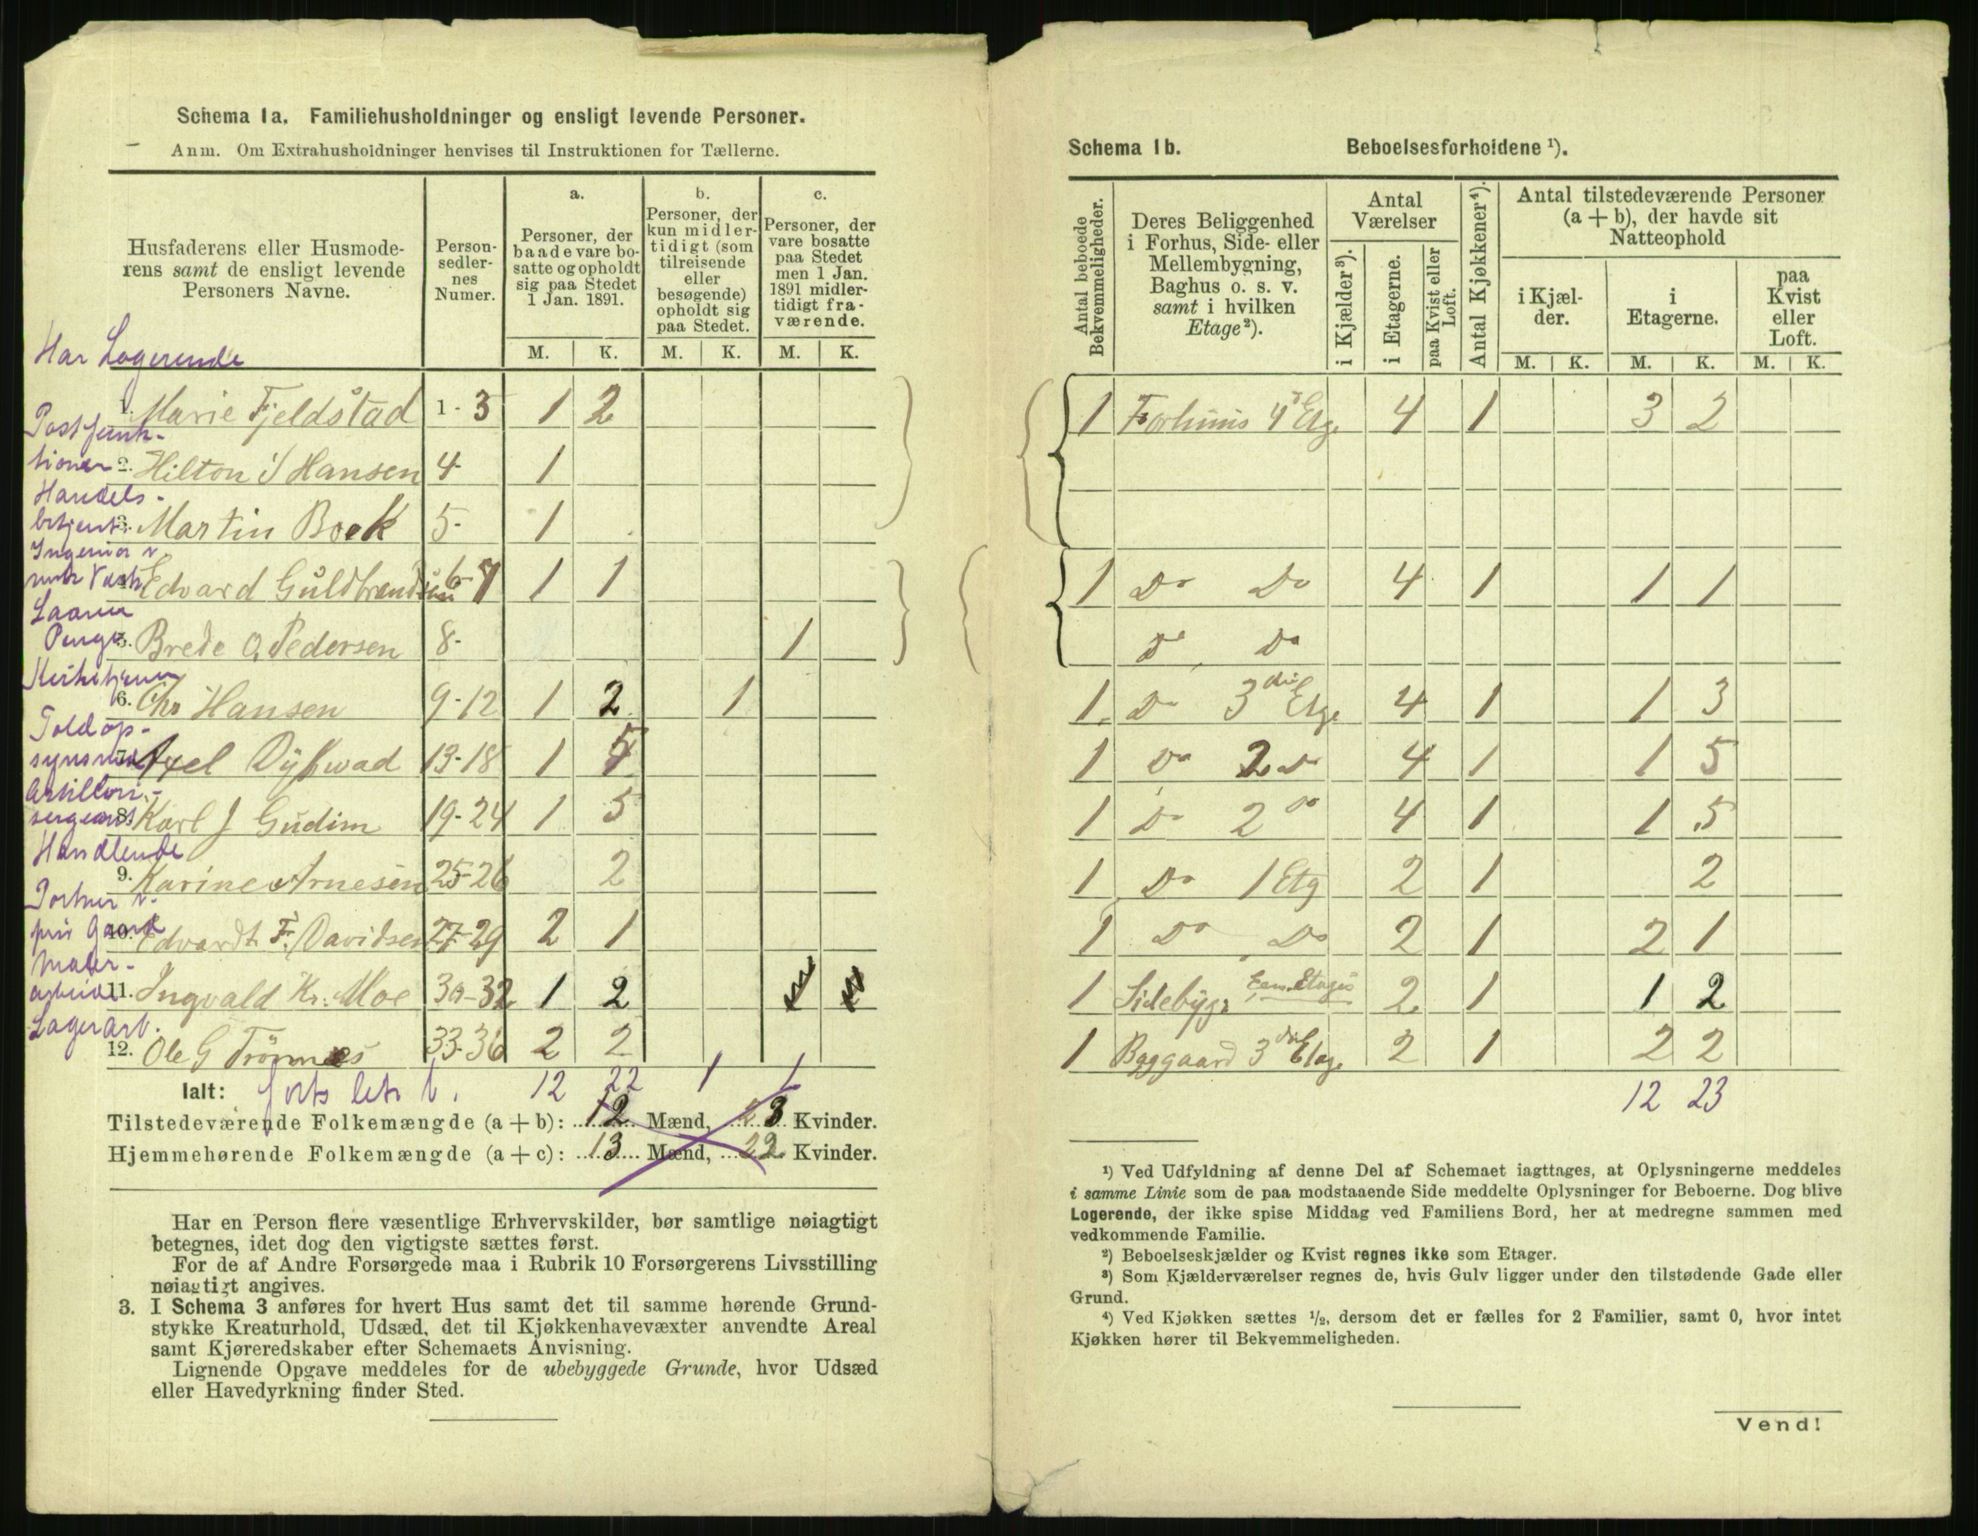 Schema 1a. Familiehusholdninger og ensligt levende Personer.
Anm. Om Extrahusholdninger henvises til Instruktionen for Tællerne.
Husfaderens eller Husmode-
rens samt de ensligt levende
Personers Navne.
Person-
sedler-
nes
Numer.
a.
Personer, der
baade vare bo-
satte og opholdt
sig paa Stedet
1 Jan. 1891.
b.
Personer, der
kun midler-
tidigt (som
tilreisende
eller
besøgende)
opholdt sig
paa Stedet.
c.
Personer, der
vare bosatte
paa Stedet
men 1 Jan.
1891 midler-
tidigt fra-
værende.
M. K. M. K. M. K.
Har Logerende
1. Marie Fjeldstad 1-3 1 2
Postfunk-
tioner 2. Hilton Hansen 4- 1
Handels-
betjent 3. Martin Boek 5- 1
Ingeniør v.
4. Edvard Guldbrandsen 6-7 1 1
Laaner
Penge 5. Brede O. Pedersen 8- 1
6. Chr Hansen 9-12 1 2 1
Toldop-
synsm 7. Axel Dybwad 13-18 1 5
Artilleri-
sergeant 8. Karl J Gudim 19-24 1 5
Handlende
9. Karine Arnesen 25-26 2
Portner v.
priv Gaard 10. Edvardt F. Davidsen 27-29 2 1
Maler-
arbeide 11. Ingvald Kr. Moe 30-32 1 2
Lagerarb.
12. Ole G Trønnes 33-36 2 2
Ialt: 12 22 1 1
Tilstedeværende Folkemængde (a + b): 12 Mænd, 23 Kvinder.
Hjemmehørende Folkemængde (a + c): 13 Mænd, 22 Kvinder.
Har en Person flere væsentlige Erhvervskilder, bør samtlige nøiagtigt
betegnes, idet dog den vigtigste sættes først.
For de af Andre Forsørgede maa i Rubrik 10 Forsørgerens Livsstilling
nøiagtigt angives.
3. I Schema 3 anføres for hvert Hus samt det til samme hørende Grund-
stykke Kreaturhold, Udsæd, det til Kjøkkenhavevæxter anvendte Areal
samt Kjøreredskaber efter Schemaets Anvisning.
Lignende Opgave meddeles for de ubebyggede Grunde, hvor Udsæd
eller Havedyrkning finder Sted.
Schema 1b. Beboelsesforholdene ¹).
Antal beboede
Bekvemmeligheder.
Deres Beliggenhed
i Forhus, Side- eller
Mellembygning,
Baghus o. s. v.
samt i hvilken
Etage²).
Antal
Værelser
i Kjælder³).
i Etagerne.
paa Kvist eller
Loft.
Antal Kjøkkener⁴).
Antal tilstedeværende Personer
(a + b), der havde sit
Natteophold
i Kjæl-
der.
i
Etagerne.
paa
Kvist
eller
Loft.
M. K. M. K. M. K.
1 Forhuus 4de Etg. 4 1 3 2
1 Do Do 4 1 1 1
Do Do
1 Do 3die Etge 4 1 1 3
1 Do 2 Do 4 1 1 5
1 Do 2 Do 4 1 1 5
1 Do 1 Etg 2 1 2
1 Do Do 2 1 2 1
1 Sidebyg. Een Etages 2 1 1 2
1 Baggaard 3die Etage 2 1 2 2
12 23
¹) Ved Udfyldning af denne Del af Schemaet iagttages, at Oplysningerne meddeles
i samme Linie som de paa modstaaende Side meddelte Oplysninger for Beboerne. Dog blive
Logerende, der ikke spise Middag ved Familiens Bord, her at medregne sammen med
vedkommende Familie.
²) Beboelseskjælder og Kvist regnes ikke som Etager.
³) Som Kjælderværelser regnes de, hvis Gulv ligger under den tilstødende Gade eller
Grund.
⁴) Ved Kjøkken sættes ½, dersom det er fælles for 2 Familier, samt 0, hvor intet
Kjøkken hører til Bekvemmeligheden.
Vend!